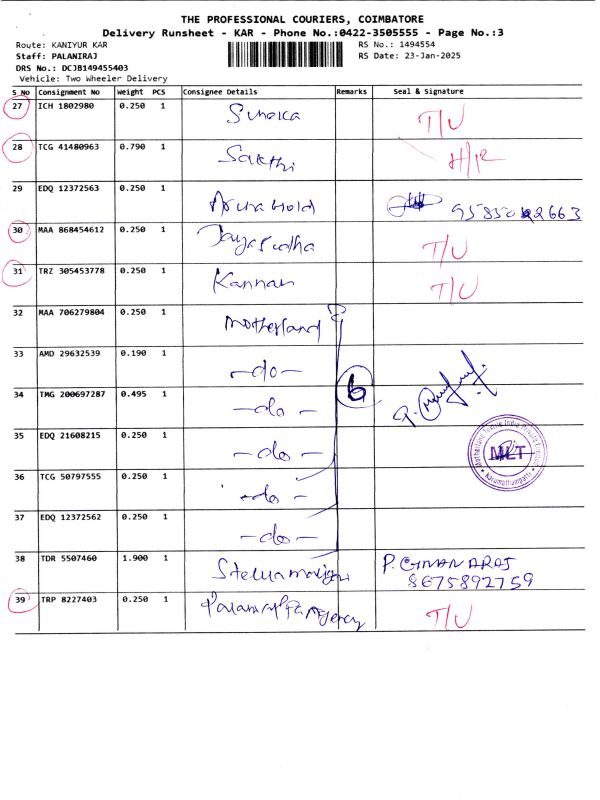 THE PROFESSIONAL COURIERS, COIMBATORE
Delivery Runsheet - KAR - Phone No.:0422-3505555 - Page No.:3
Route: KANIYUR KAR RS No.: 1494554
Staff: PALANIRAJ RS Date: 23-Jan-2025
DRS No.: DCJB149455403
Vehicle: Two Wheeler Delivery
S No Consignment No Weight PCS Consignee Details Remarks Seal & Signature
27 ICH 1802980 0.250 1 T/U
28 TCG 41480963 0.790 1 Sakthi H/R
29 EDQ 12372563 0.250 1
30 MAA 868454612 0.250 1 Jayasudha T/U
31 TRZ 305453778 0.250 1 Kannan T/U
32 MAA 706279804 0.250 1 Motherland
33 AMD 29632539 0.190 1 -do-
34 TMG 200697287 0.495 1 -do- 6
35 EDQ 21608215 0.250 1 -do- MLT
36 TCG 50797555 0.250 1 -do-
37 EDQ 12372562 0.250 1 -do-
38 TDR 5507460 1.900 1 P. GNANARAJ
8675892759
39 TRP 8227403 0.250 1 Agency T/U